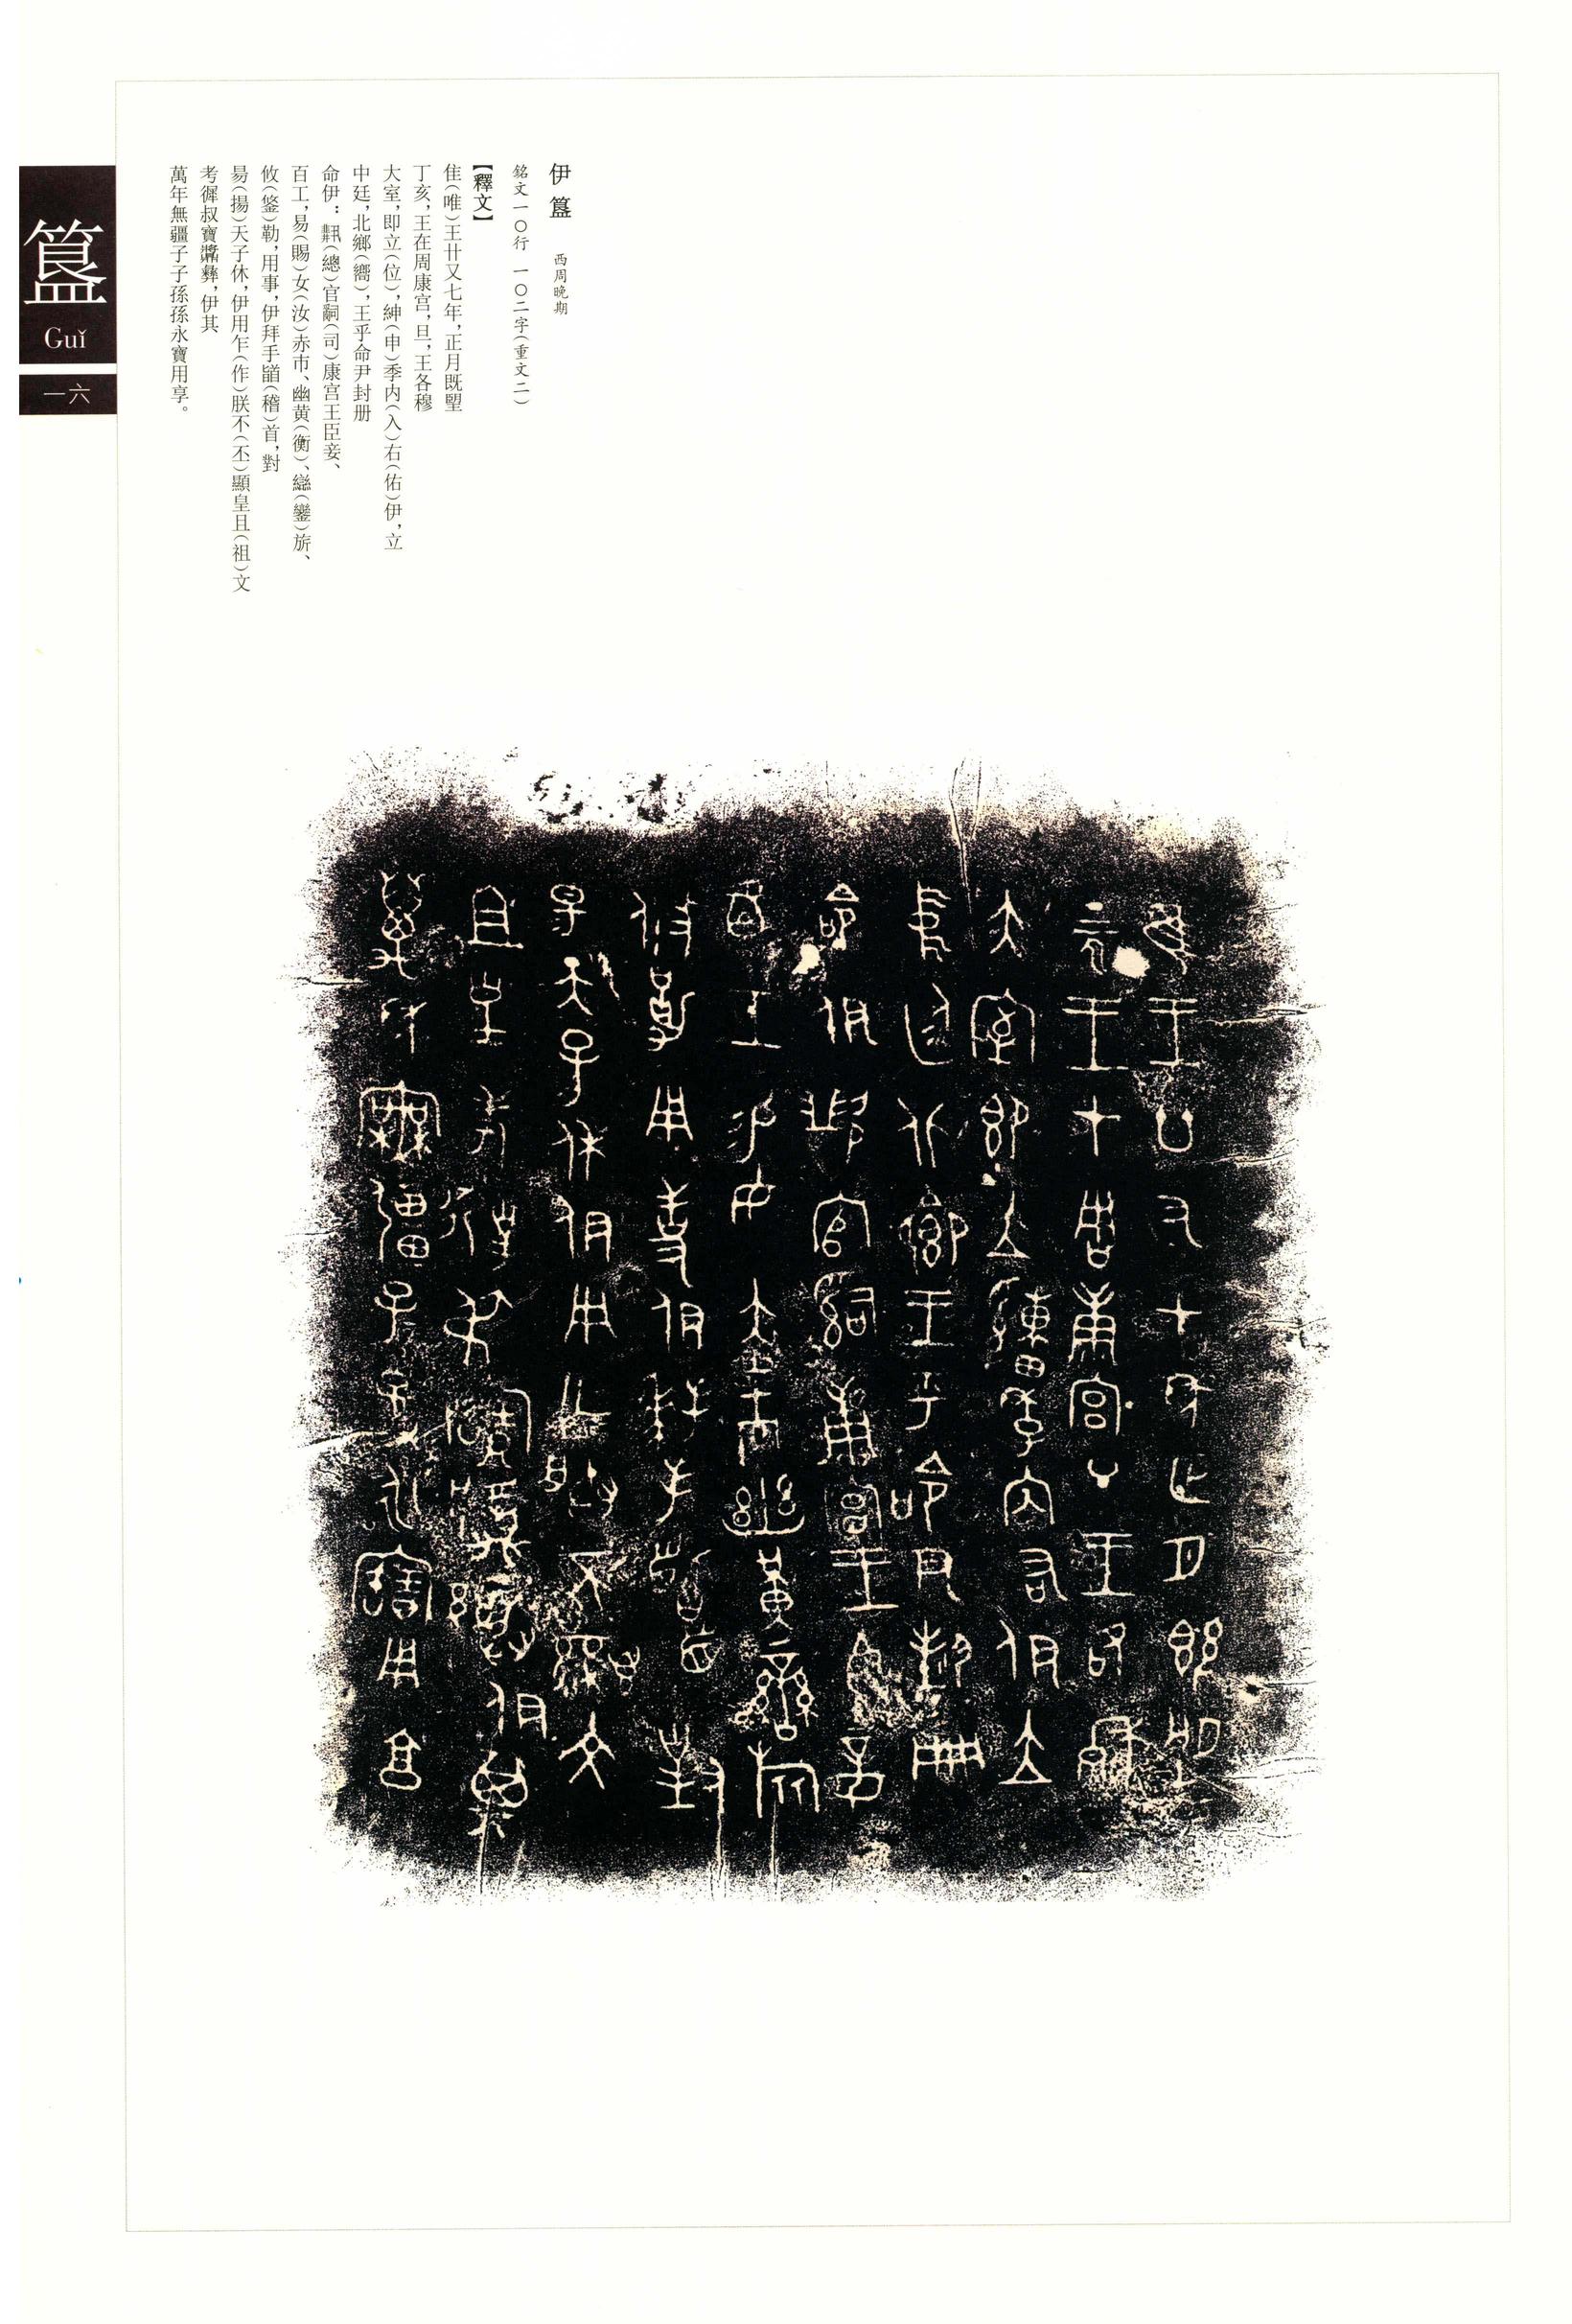 伊簋 西周晚期
銘文一〇行 一〇二字（重文二）
【釋文】
隹（唯）王廿又七年，正月既朢
丁亥，王在周康宫，旦，王各穆
大室，即立（位），紳（申）季内（入）右（佑）伊，立
中廷，北鄉（嚮），王乎命尹封册
命伊：𤔲（總）官嗣（司）康宫王臣妾、
百工，易（賜）女（汝）赤市、幽黄（衡）、䜌（鑾）旂、
攸（鋚）勒，用事，伊拜手䭫（稽）首，對
昜（揚）天子休，伊用乍（作）朕不（丕）顯皇且（祖）文
考徲叔寶𩰫彝，伊其
萬年無疆子子孫孫永寶用享。
簋
Guǐ
一六